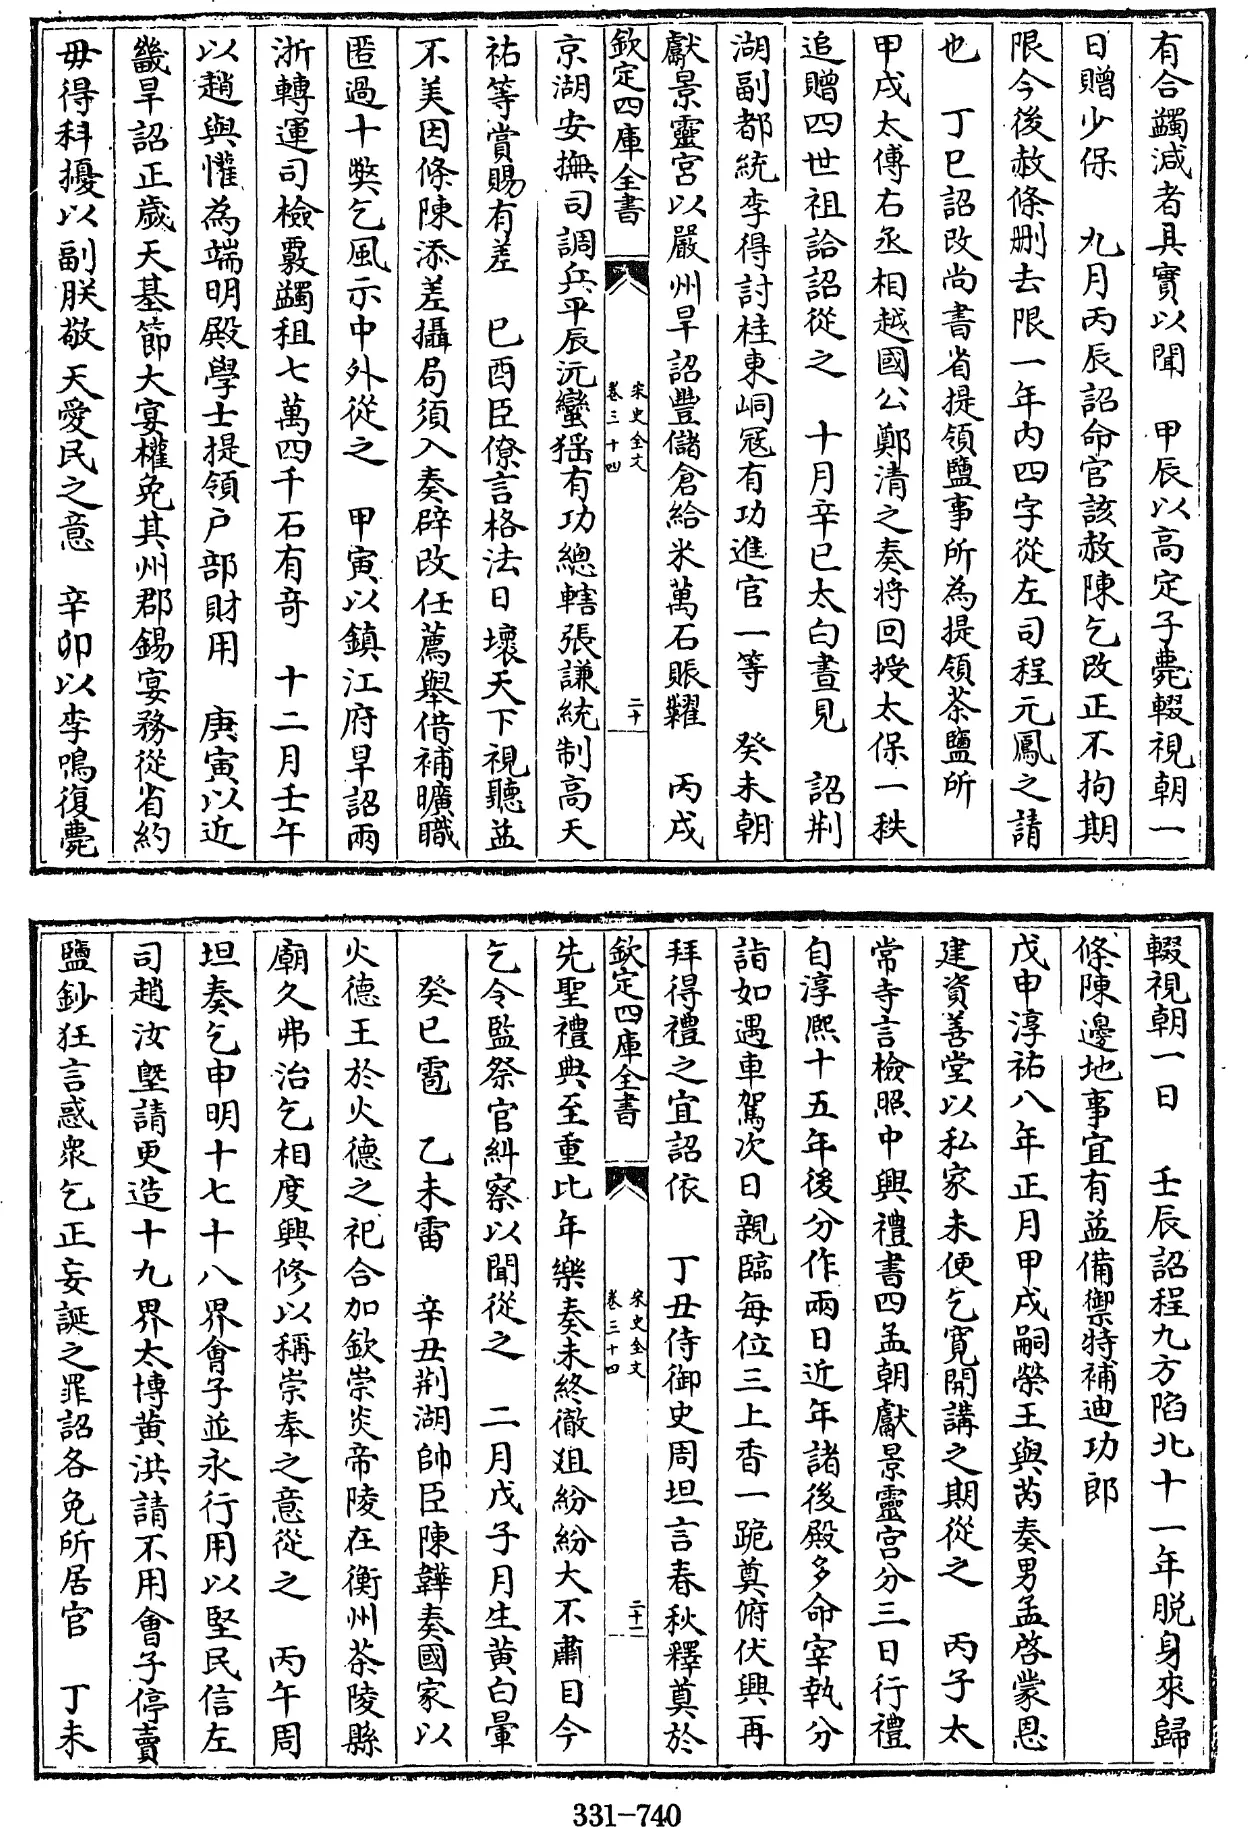 有合蠲減者具實以聞　甲辰以高定子薨輟視朝一
日贈少保　九月丙辰詔命官該赦陳乞改正不拘期
限今後赦條刪去限一年內四字從左司程元鳳之請
也　丁巳詔改尚書省提領鹽事所為提領茶鹽所
甲戌太傅右丞相越國公鄭清之奏將回授太保一秩
追贈四世祖詥詔從之　十月辛巳太白晝見　詔荆
湖副都統李得討桂東峒冦有功進官一等　癸未朝
獻景靈宮以嚴州旱詔豐儲倉給米萬石賬糶　丙戌
欽定四庫全書
宋史全文
卷三十四
二十
京湖安撫司調兵平辰沅蠻猺有功總轄張謙統制高天
祐等賞賜有差　己酉臣僚言格法日壞天下視聽益
不美因條陳添差攝局須入奏辟改任薦舉借補曠職
匿過十弊乞風示中外從之　甲寅以鎮江府旱詔兩
浙轉運司檢覈蠲租七萬四千石有竒　十二月壬午
以趙與懽為端明殿學士提領户部財用　庚寅以近
畿旱詔正歲天基節大宴權免其州郡錫宴務從省約
毋得科擾以副朕敬天愛民之意　辛卯以李鳴復薨
輟視朝一日　壬辰詔程九方陷北十一年脱身來歸
條陳邊地事宜有益備禦特補迪功郎
戊申淳祐八年正月甲戌嗣榮王與芮奏男孟啓蒙恩
建資善堂以私家未便乞寬開講之期從之　丙子太
常寺言檢照中興禮書四孟朝獻景靈宫分三日行禮
自淳熙十五年後分作兩日近年諸後殿多命宰執分
詣如遇車駕次日親臨每位三上香一跪奠俯伏興再
拜得禮之宜詔依　丁丑侍御史周坦言春秋釋奠於
欽定四庫全書
宋史全文
卷三十四
二十一
先聖禮典至重比年樂奏未終徹俎紛紛大不肅目今
乞令監祭官糾察以聞從之　二月戊子月生黄白暈
癸巳雹　乙未雷　辛丑荆湖帥臣陳韡奏國家以
火德王於火德之祀合加欽崇炎帝陵在衡州茶陵縣
廟久弗治乞相度興修以稱崇奉之意從之　丙午周
坦奏乞申明十七十八界會子並永行用以堅民信左
司趙汝塈請更造十九界太博黄洪請不用會子停賣
鹽鈔狂言惑衆乞正妄誕之罪詔各免所居官　丁未
331-740